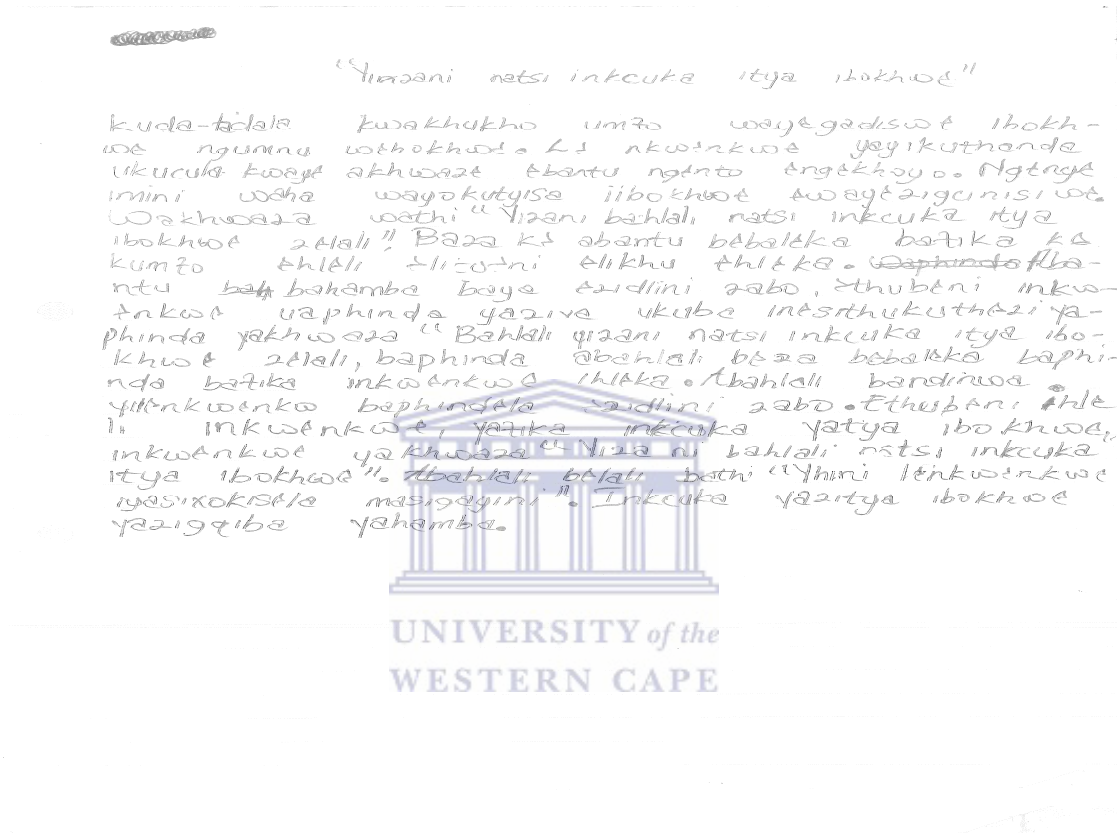 "Yizani natsi inkcuka itya ibokhwe"
kuda-dala kwakhukho umfo wayegadiswe ibokh-
we ngumnu webokhwe. Le nkwenkwe yayikuthanda
ukucula kwaye akhwaze ebantu ngento engekhoyo. Ngenye
imini waha wayokutyisa iibokhwe ewayezigcinisiwe.
Wakhwaza wathi "Yizani bahlali natsi inkcuka itya
ibokhwe zelali". Baza ke abantu bebaleka bafika ke
kumfo ehleli elikhu ehleka. waphinda Aba-
ntu bahamba baya ezidlini zabo, ethubeni inkw-
enkwe uaphinda yaziva ukuba inesithukuthezi ya-
phinda yakhwaza "Bahlali yizani natsi inkcuka itya ibo-
khwe zelali, baphinda abahlali beza bebaleka baphi-
nda bafika inkwenkwe ihleka. Abahlali bandinwa
yilenkwenkw baphindela ezidlini zabo. Ethubeni ehle
li inkwenkwe, yafika inkcuka yatya ibokhwe,
inkwenkwe yakhwaza "Yiza ni bahlali natsi inkcuka
itya ibokhwe". Abahlali belali bathi "Yhini lenkwenkwe
iyasixokisela masigayini". Inkcuka yazitya ibokhwe
yazigqiba yahamba.
UNIVERSITY of the
WESTERN CAPE